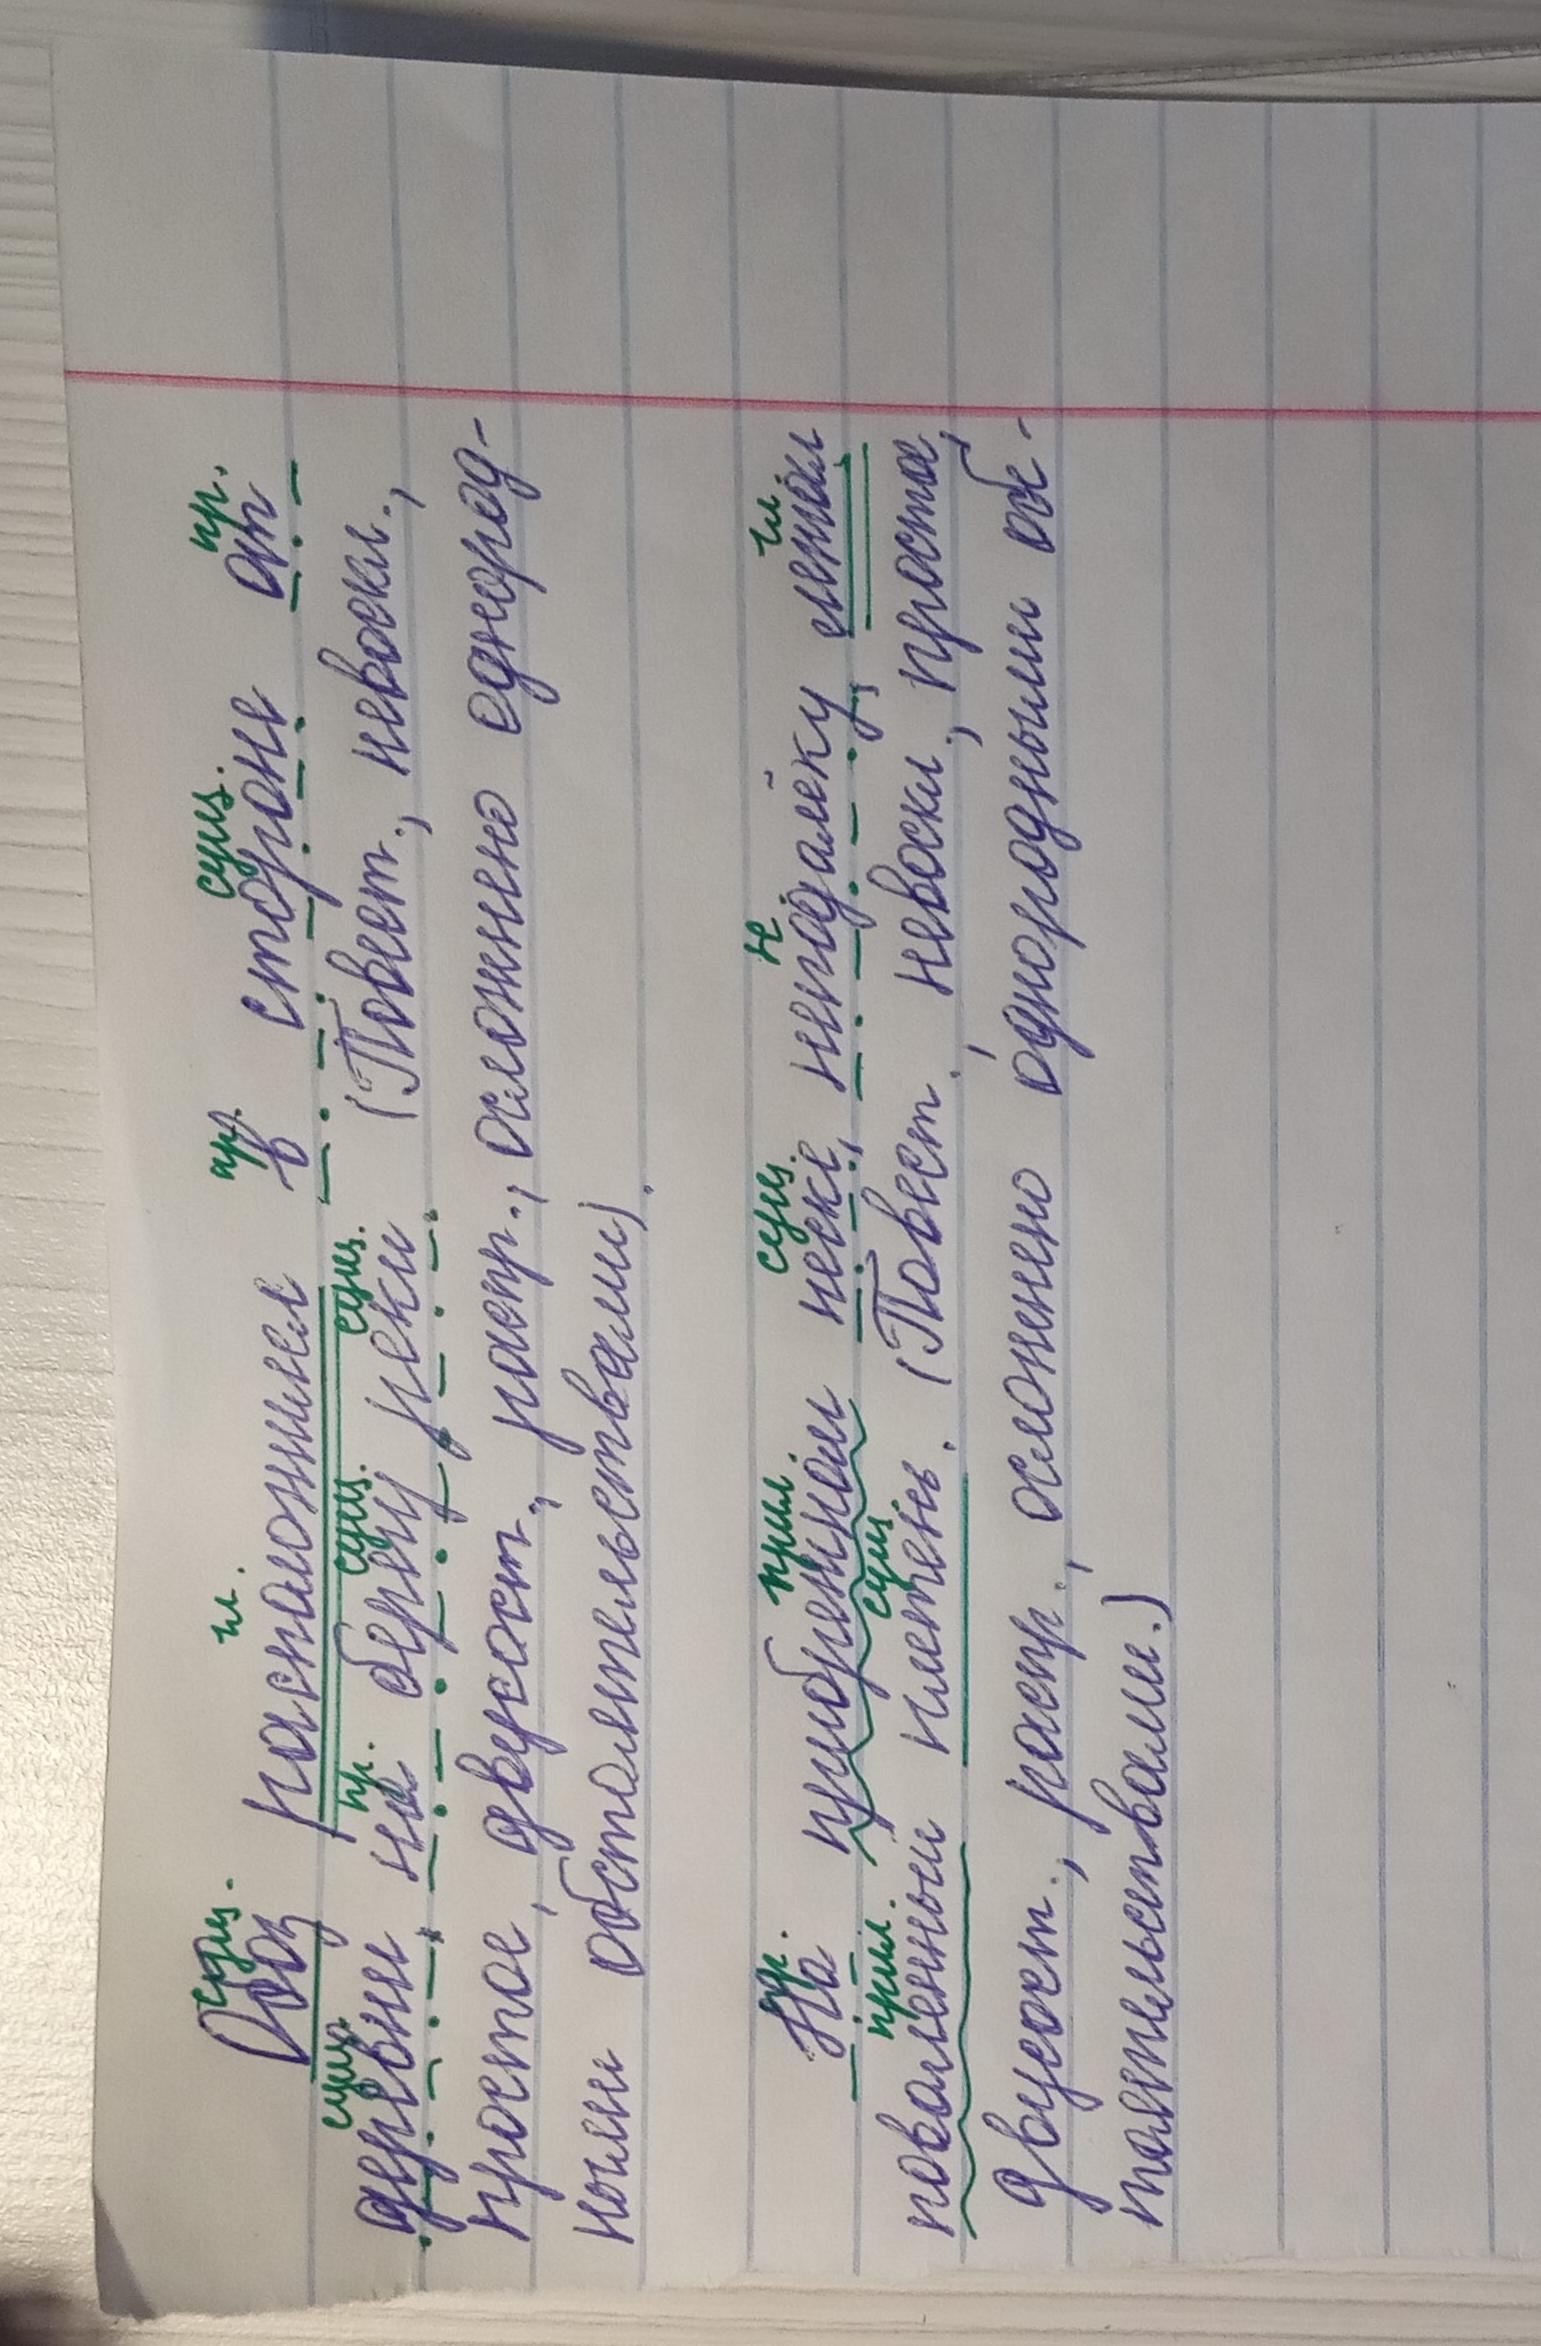 сущ. гл. пр. сущ. пр.
Обоз расположился в стороне от
сущ. пр. сущ. сущ.
деревни, на берегу реки. (Повест., невоскл.,
простое, двусост., распр., осложнено однород-
ными обстоятельствами).
пр. прил. сущ. н. гл.
На прибрежном песке, неподалёку, лежал
прил. сущ.
поваленный плетень. (Повест., невоскл., простое,
двусост., распр., осложнено однородными обс-
тоятельствами.)